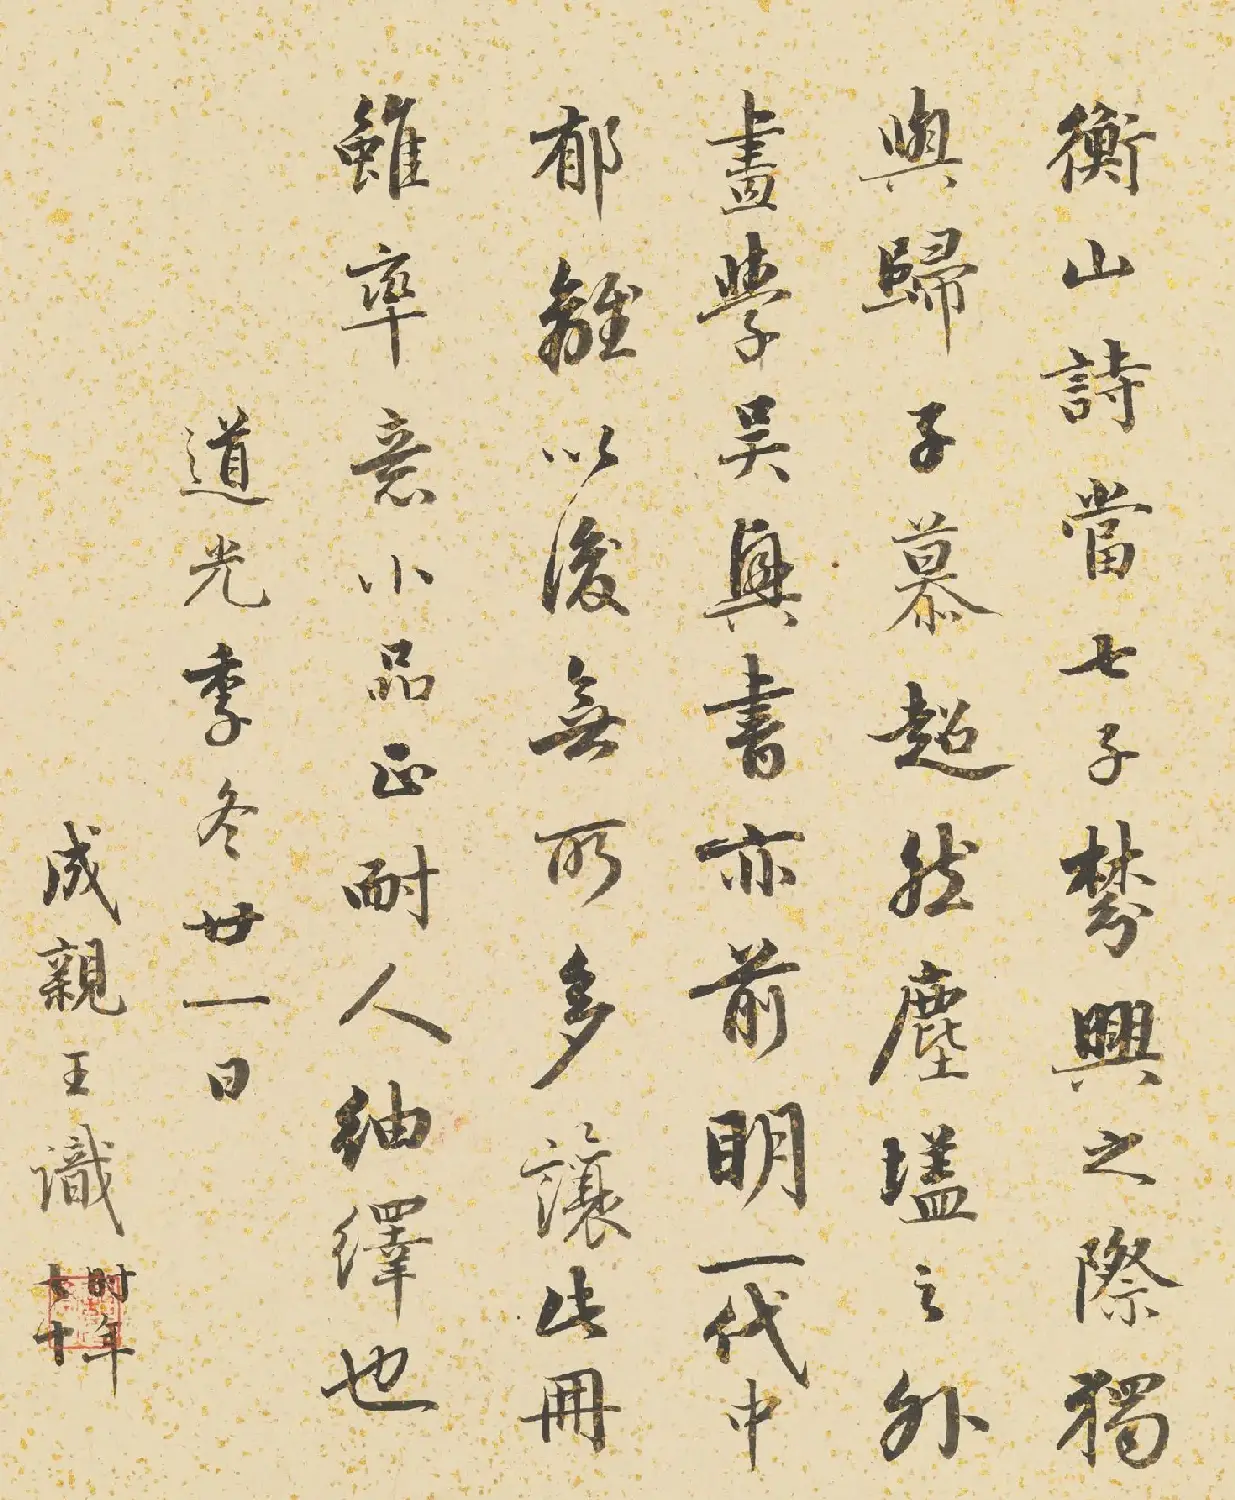 衡山詩當七子棼興之際獨
與歸子慕超然塵壒之外
畫學吴興書亦前明一代中
郁離以後無所多讓此冊
雖率意小品正耐人紬繹也
道光季冬廿一日
成親王識
时年
七十